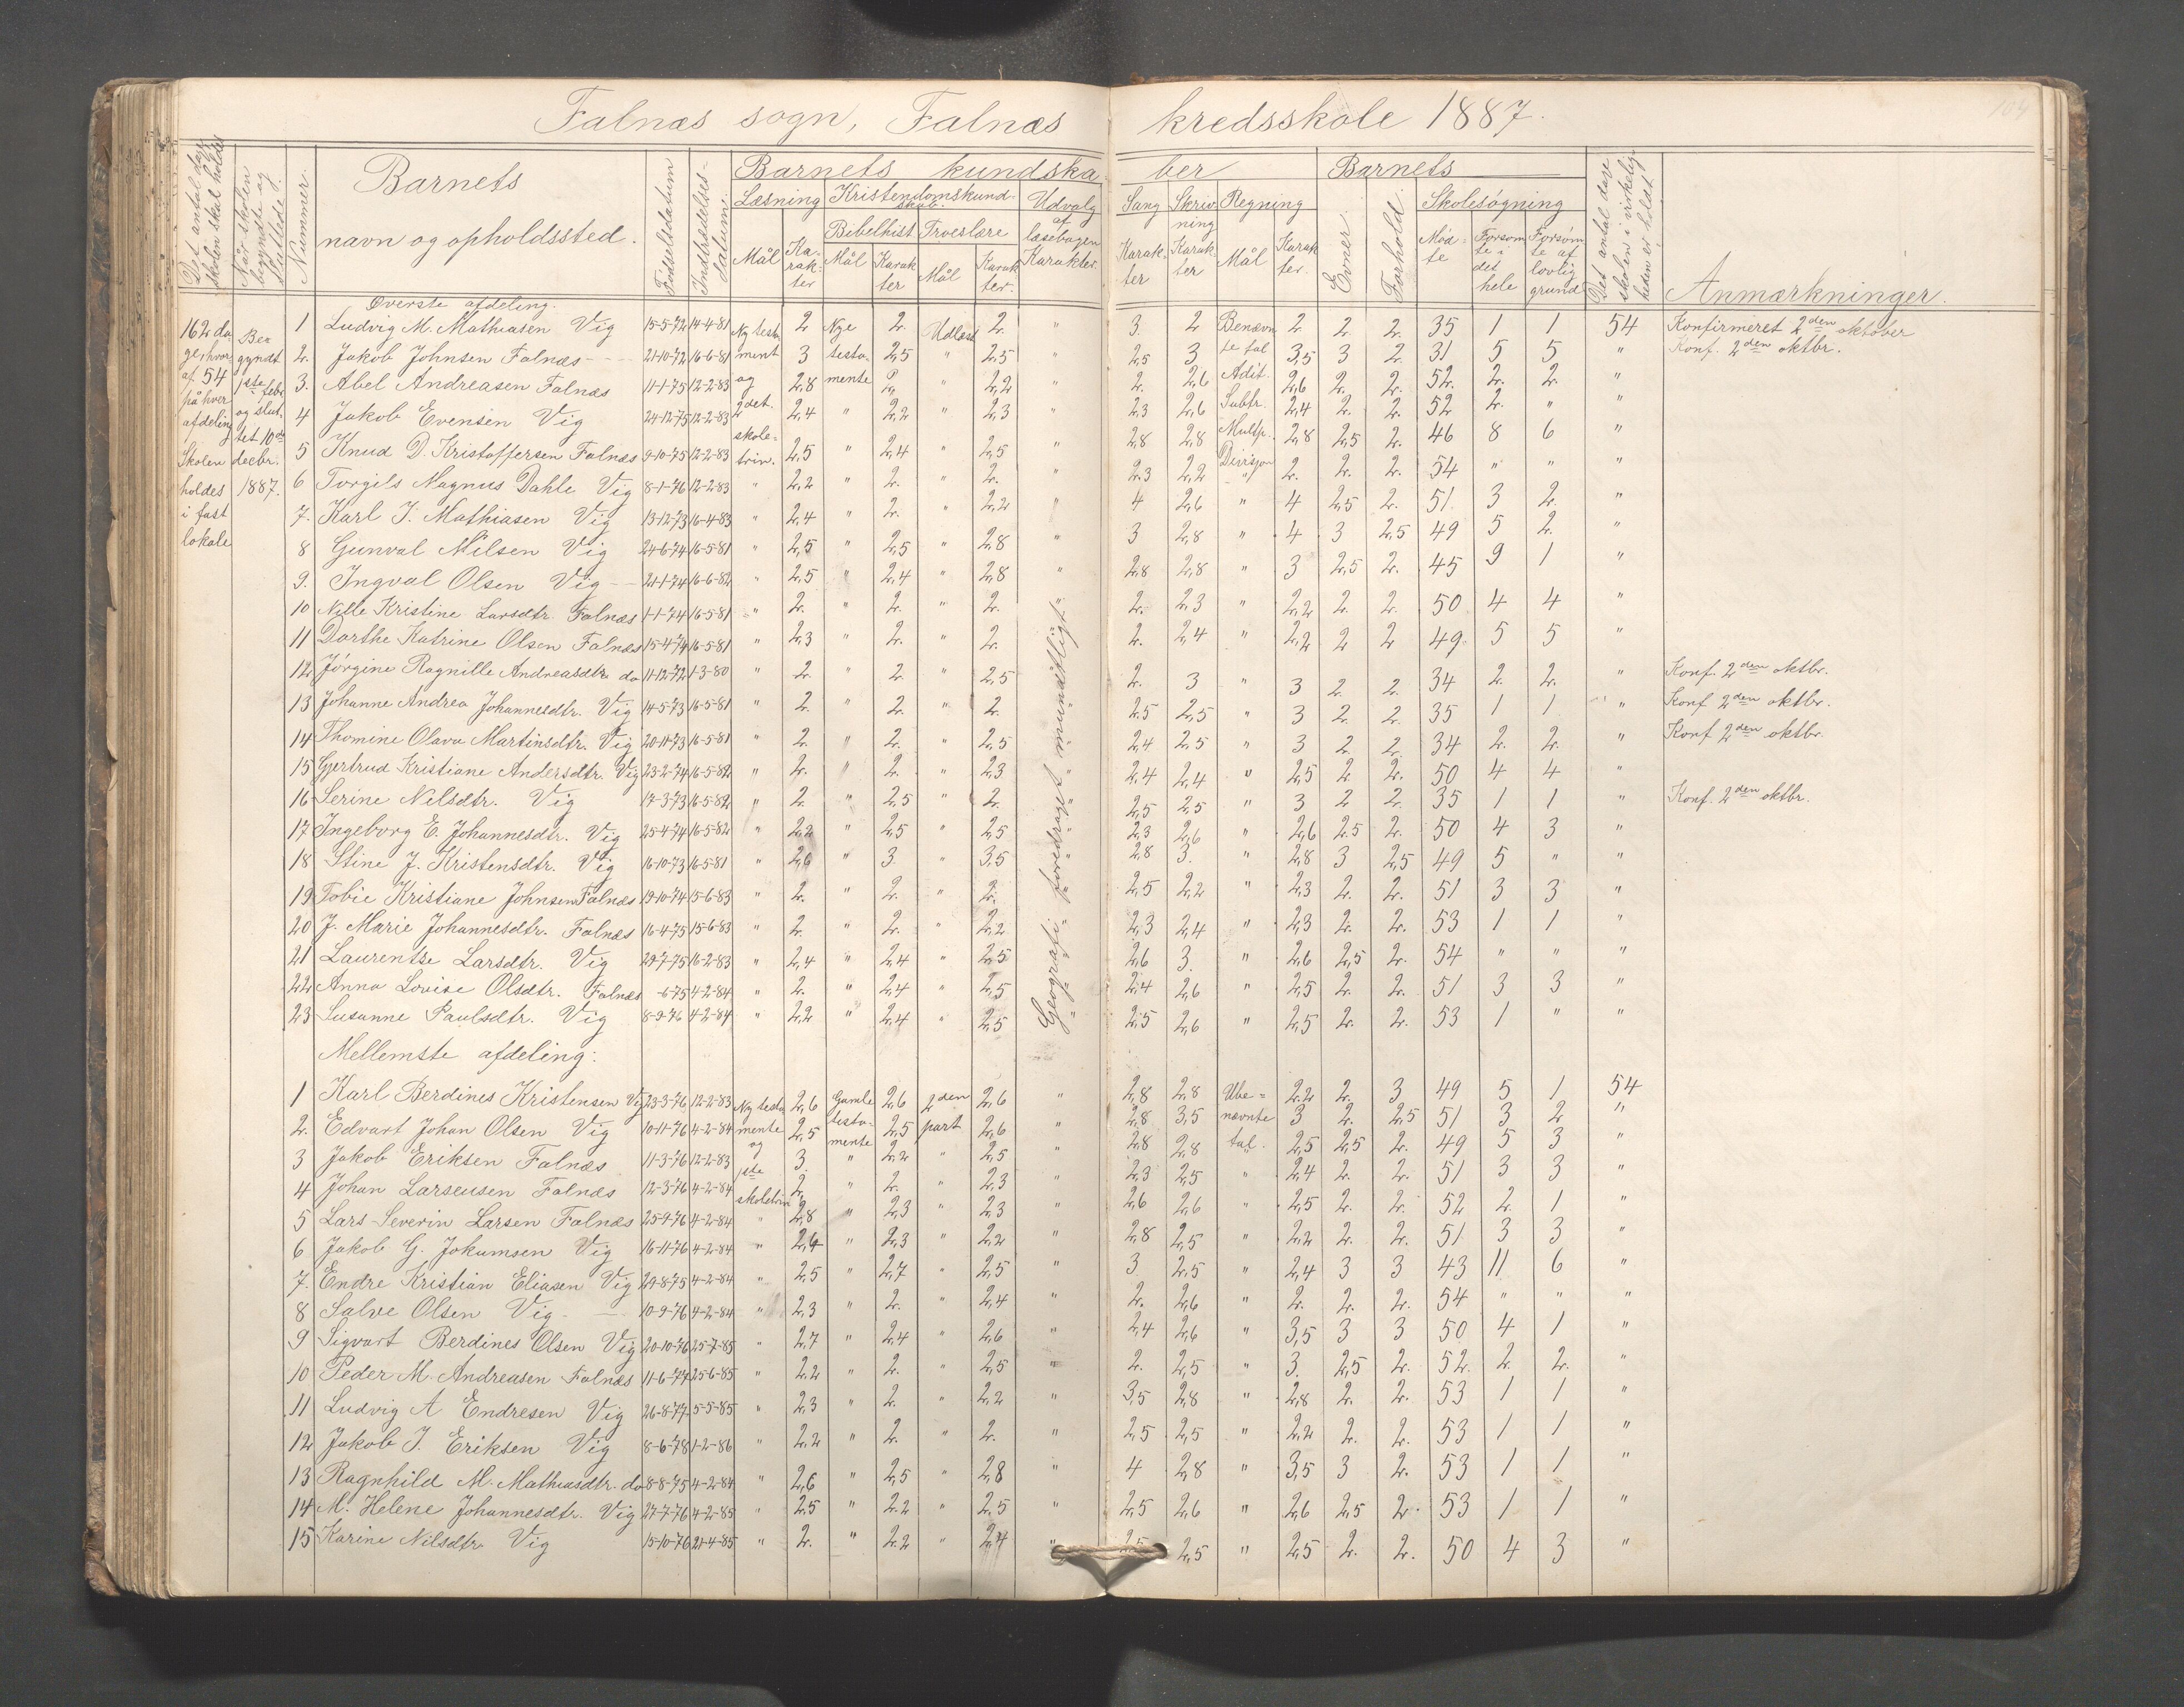 Falnæs sogn, Falnæs kredsskole 1887.
104
Det antal dage skolen skal holdes
Når skolen begyndte og sluttede.
Nummer.
Barnets navn og opholdssted.
Fødselsdatum
Indtrædelsesdatum.
Barnets kundskaber
Læsning Kristendomskundskab. Udvalg af læsebogen Sang Skrivning Regning
Bibelhist. Troeslære
Mål Karakter Mål Karakter Mål Karakter. Karakter. Karakter Karakter Mål Karakter.
Barnets
Evner. Forhold. Skolesøgning
Mødte Forsømte i det hele Forsømte af lovlig grund
Det antal dage skolen i virkeligheden er holdt.
Anmærkninger.
162 dage hvoraf 54 på hver afdeling Skolen holdes i fast lokale
Begyndt 1ste febr. og sluttet 10de decbr. 1887.
Øverste afdeling.
1 Ludvig M. Mathiasen Vig 15-5-72 14-4-81 Ny testament og 2det skoletrin. 2 Nye testamente 2. Udlæst 2. " 3. 2 Benævnte tal 2. 2. 2. 35 1 1 54 Konfirmeret 2den oktober
2. Jakob Johnsen Falnæs 21-10-72 16-6-81 3 2,5 " 2,5 " 2,5 3 3,5 3 2. 31 5 5 " Konf. 2den oktbr.
3. Abel Andreasen Falnæs 11-1-75 12-2-83 2,8 2. " 2,2 " 2. 2,6 Adit. 2,6 2. 2. 52. 2. 2. "
4 Jakob Evensen Vig 24-12-75 12-2-83 2,4 " 2,2 " 2,3 " 2,3 2,6 Subtr. 2,4 2. 2. 52 2. " "
5 Knud D. Kristoffersen Falnæs 9-10-75 12-2-83 2,5 " 2,4 " 2,5 " 2,8 2,8 Multp. 2,8 2,5 2. 46 8 6 "
6 Torgils Magnus Dahle Vig 8-1-76 12-2-83 " 2,2 " 2. " 2. " 2,3 2,2 Divisjon 2. 2. 2. 54 " " "
7. Karl J. Mathiasen Vig 13-12-73 16-4-83 " 2,4 " 2. " 2,2 " 4 2,6 " 4 2,5 2. 51 3 2. "
8 Gunval Nilsen Vig 24-6-74 16-5-81 " 2,5 " 2,5 " 2,8 " 3 2,8 " 4 3 2,5 49 5 2. "
9. Ingval Olsen Vig 21-1-74 16-6-82 " 2,5 " 2,4 " 2,8 " 2,8 2,8 " 3 2,5 2. 45 9 1 "
10 Nille Kristine Larsdtr. Falnæs 1-1-74 16-5-81 " 2. " 2. " 2. " 2. 2,3 " 2,2 2. 2. 50 4 4 "
11 Dorthe Katrine Olsen Falnæs 15-4-74 16-5-81 " 2,3 " 2. " 2. 2. 2,4 " 2,2 2 2 49 5 5 "
12 Jørgine Ragnille Andreasdtr. do 11-12-72 1-3-80 " 2. " 2. " 2,5 2. 3 " 3 2. 2. 34 2. 2. " Konf. 2den oktbr.
13 Johanne Andrea Johannesdtr. Vig 14-5-73 16-5-81 " 2. " 2. " 2. 2,5 2,5 " 3 2. 2. 35 1 1 " Konf 2den oktbr.
14 Thomine Olava Martinsdtr. Vig 20-11-73 16-5-81 " 2. " 2. " 2,5 2,4 2,5 " 3 2. 2. 34 2. 2. " Konf 2den oktbr.
15 Gjertrud Kristiane Andersdtr. Vig 23-2-74 16-5-82 " 2. " 2. " 2,3 2,4 2,4 " 2,5 2 2. 50 4 4 "
16 Serine Nilsdtr. Vig 17-3-73 16-5-82 " 2. " 2,5 " 2. 2,5 2,5 " 3 2 2. 35 1 1 " Konf. 2den oktbr.
17 Ingeborg E. Johannesdtr. Vig 25-4-74 16-5-82 " 2,2 " 2,5 " 2,5 2,3 2,6 " 2,6 2,5 2. 50 4 3 "
18 Stine J. Kristensdtr. Vig 16-10-73 16-5-81 " 2,6 " 3. " 3,5 2,8 3. " 2,8 3 2,5 49 5 " "
19 Tobie Kristiane Johnsen Falnæs 19-10-74 15-6-83 " 2. " 2. " 2. 2,5 2,2 " 2,3 2. 2. 51 3 3 "
20 J. Marie Johannesdtr. Falnæs 16-4-75 15-6-83 " 2. " 2. " 2,2 2,3 2,4 " 2,3 2. 2. 53 1 1 "
21 Laurentze Larsdtr. Vig 29-7-75 16-2-83 " 2,4 " 2,4 " 2,5 2,6 3. " 2,6 2,5 2. 54 " " "
22 Anna Lovise Olsdtr. Falnæs -6-75 4-2-84 " 2. " 2,4 " 2,5 2,4 2,6 " 2,5 2. 2. 51 3 3 "
23 Susanne Paulsdtr. Vig 8-9-76 4-2-84 " 2,2 " 2,4 " 2,5 2,5 2,6 " 2,5 2. 2. 53 1 " "
Geografi foredraget mundtligt
Mellemste afdeling:
1 Karl Berdines Kristensen Vig 23-3-76 12-2-83 Ny testamente og 1ste skoletrin 2,6 Gamle testamente 2,6 2den part 2,6 " 2,8 2,8 Ubenævnte tal. 2,2 2. 3 49 5 1 54
2. Edvart Johan Olsen Vig 10-11-76 4-2-84 2,5 2,5 2,6 " 2,8 3,5 3 2. 2,5 51 3 2 "
3 Jakob Eriksen Falnæs 11-3-76 12-2-83 3. " 2,2 " 2,5 " 2,8 2,8 2,5 2,5 2. 49 5 3 "
4 Johan Larsensen Falnæs 12-3-76 4-2-84 2. " 2. " 2,3 " 2,3 2,5 " 2,4 2. 2. 51 3 3 "
5 Lars Severin Larsen Falnæs 25-9-76 4-2-84 " 2,8 " 2,3 " 2,3 " 2,6 2,6 " 2,5 2. 2. 52 2. 1 "
6 Jakob G. Jokumsen Vig 16-11-76 4-2-84 " 2,4 " 2,3 " 2,2 " 2,8 2,5 " 2,2 2. 2. 51 3 3 "
7. Endre Kristian Eliasen Vig 29-8-75 4-2-84 " 2,5 " 2,7 " 2,5 " 3 2,5 " 2,4 3 3 43 11 6 "
8 Salve Olsen Vig 10-9-76 4-2-84 " 2,3 " 2. " 2,4 " 2. 2,6 " 2. 2. 2. 54 " " "
9 Sigvart Berdines Olsen Vig 20-10-76 25-7-85 " 2,7 " 2,4 " 2,6 " 2,4 2,6 " 3,5 3 3 50 4 1 "
10 Peder M. Andreasen Falnæs 11-6-77 25-6-85 " 2,2 " 2. " 2,5 " 2. 2,5 " 3. 2,5 2. 52. 2. 2. "
11 Ludvig A Endresen Vig 26-8-77 5-5-85 " 2,3 " 2. " 2,2 " 3,5 2,8 " 2,8 2. 2. 53 1 1 "
12 Jakob J. Eriksen Vig 8-6-78 1-2-86 " 2,2 " 2. " 2. " 2,5 2,5 " 2,2 2. 2. 53 1 1 "
13 Ragnhild M. Mathiasdtr. do 8-8-75 4-2-84 " 2,6 " 2,5 " 2,8 " 4 2,8 " 3,5 3 2. 53 1 1 "
14 M. Helene Johannesdtr. Vig 27-7-76 4-2-85 " 2,5 " 2,2 " 2,5 " 2,5 2,6 " 2,6 2,5 2. 53 1 1 "
15 Karine Nilsdtr. Vig 15-10-76 21-4-85 " 2. " 2,2 " 2,4 " 2,5 2,5 " 2,5 2. 2. 50 4 3 "